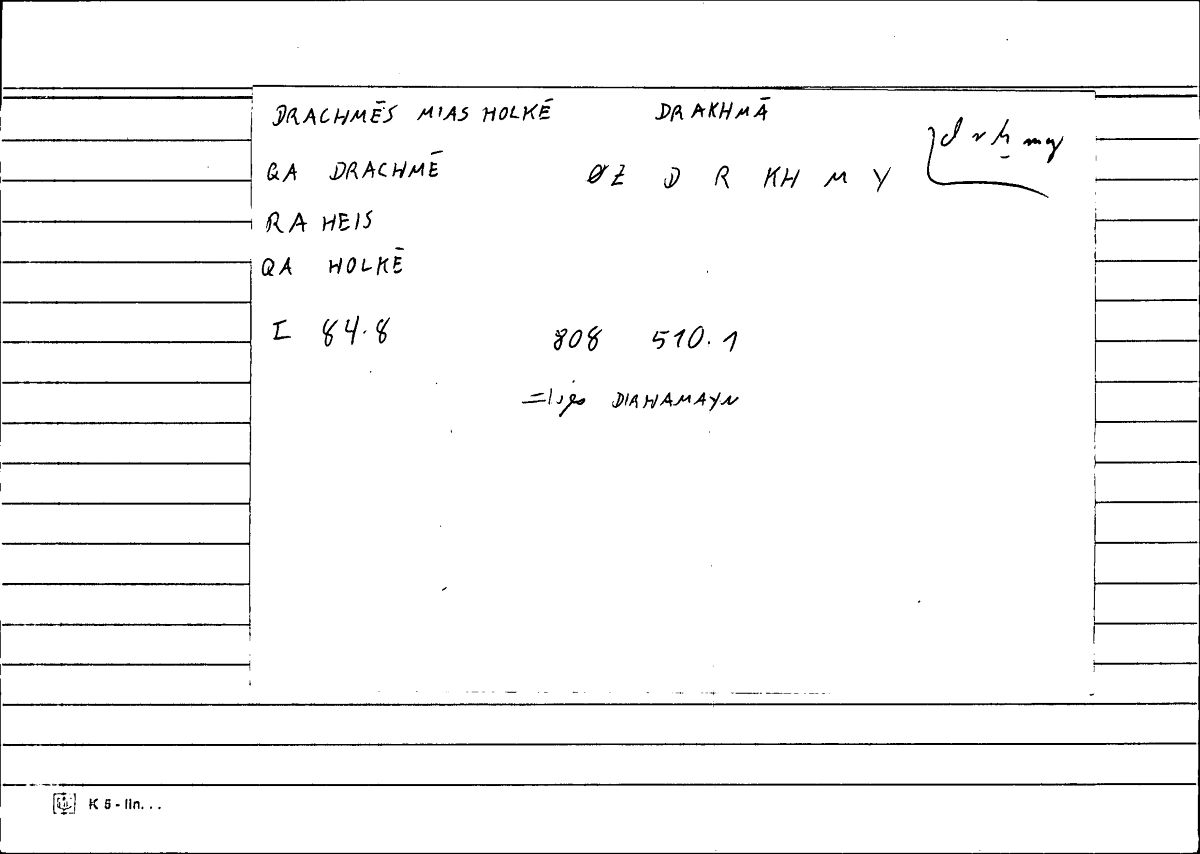 DRACHMĒS MIAS HOLKĒ DRAKHMĀ
drḫmy
QA DRACHMĒ ØZ D R KH M Y
RA HEIS
QA HOLKĒ
I 84.8 808 510.1
DIRHAMAYN
K 5 - lin...